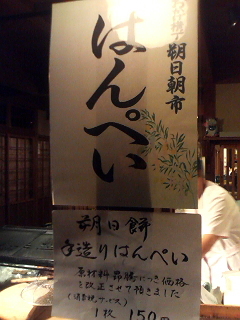 朔日朝市
はんぺい
朔日餅
手造りはんぺい
原材料昂騰につき価格
を改正させて頂きました
(消費税サービス)
1枚 150円